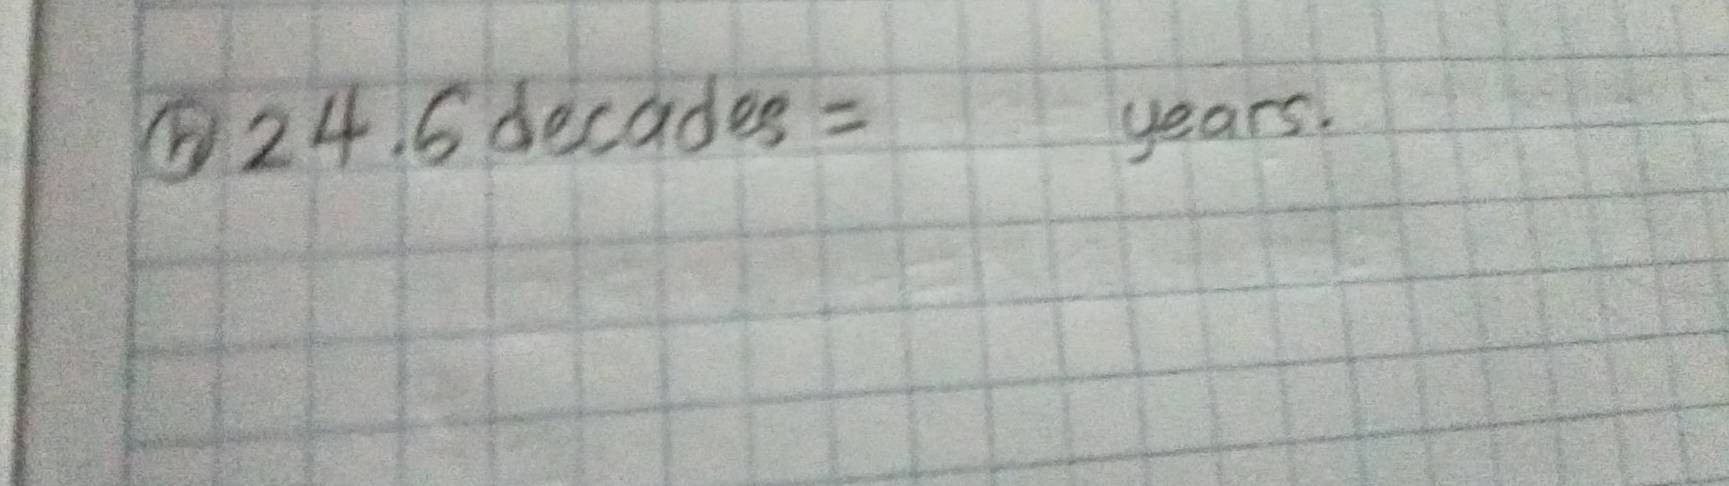 ⓗ 24.6 decades = years.